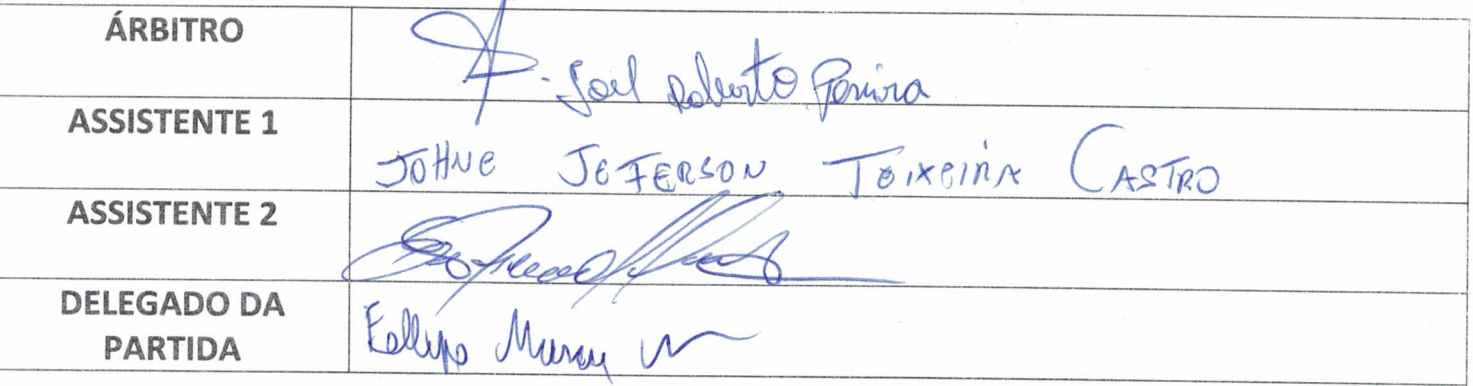 ÁRBITRO
Joel Roberto Pereira
ASSISTENTE 1
JOHNE JEFERSON TEIXEIRA CASTRO
ASSISTENTE 2
DELEGADO DA
PARTIDA